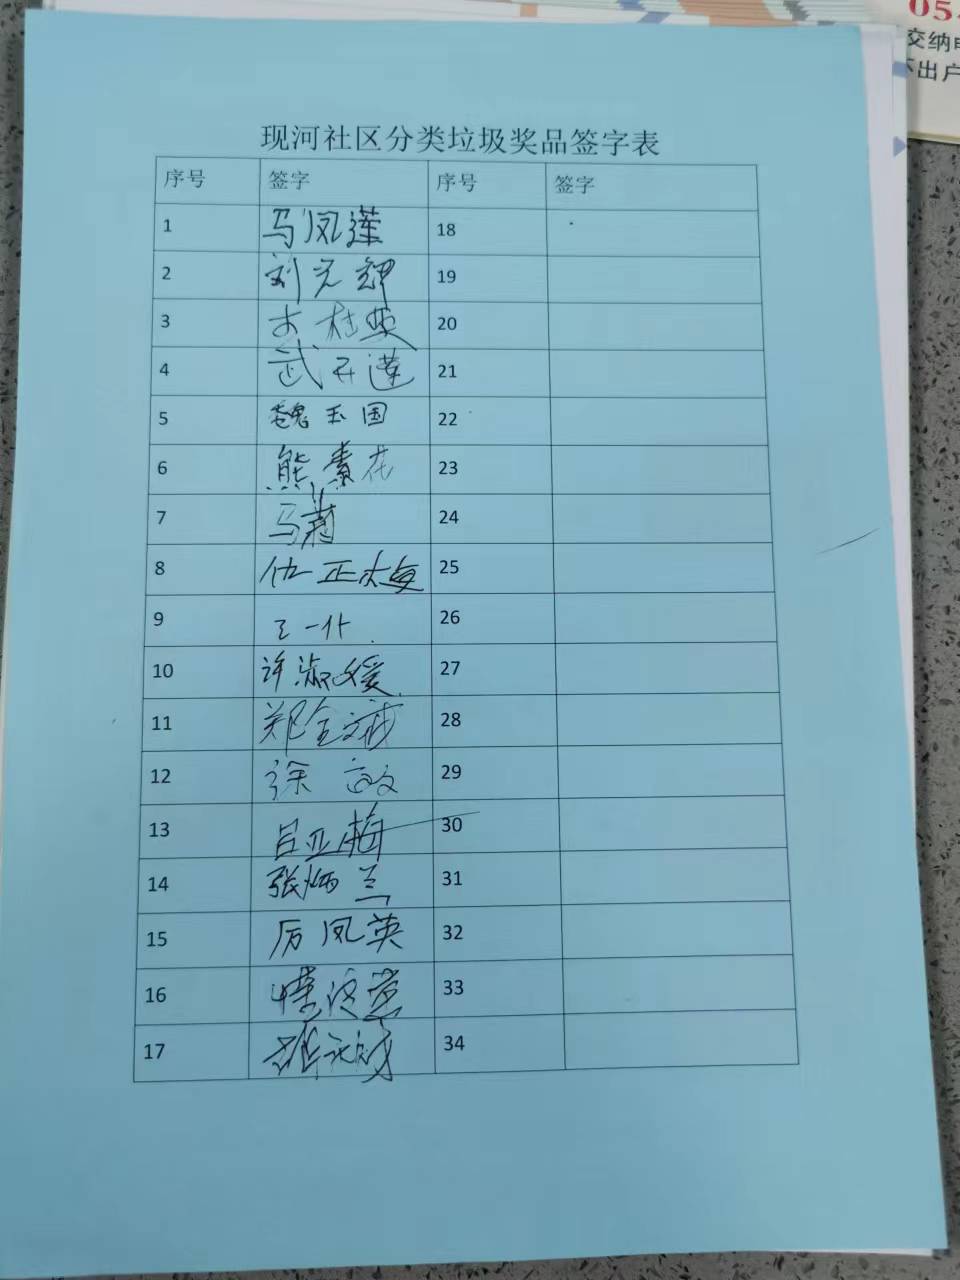 05
交纳
不出户
现河社区分类垃圾奖品签字表
序号 签字 序号 签字
1 马凤莲 18
2 刘元翠 19
3 20
4 武开莲 21
5 魏玉国 22
6 熊素花 23
7 马莉 24
8 仇正梅 25
9 26
10 许淑媛 27
11 郑全斌 28
12 徐 29
13 吕亚梅 30
14 张炳兰 31
15 厉凤英 32
16 33
17 34